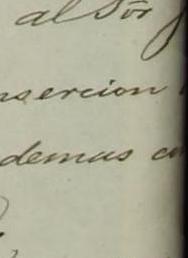 al Sõr
nsercion
demas co